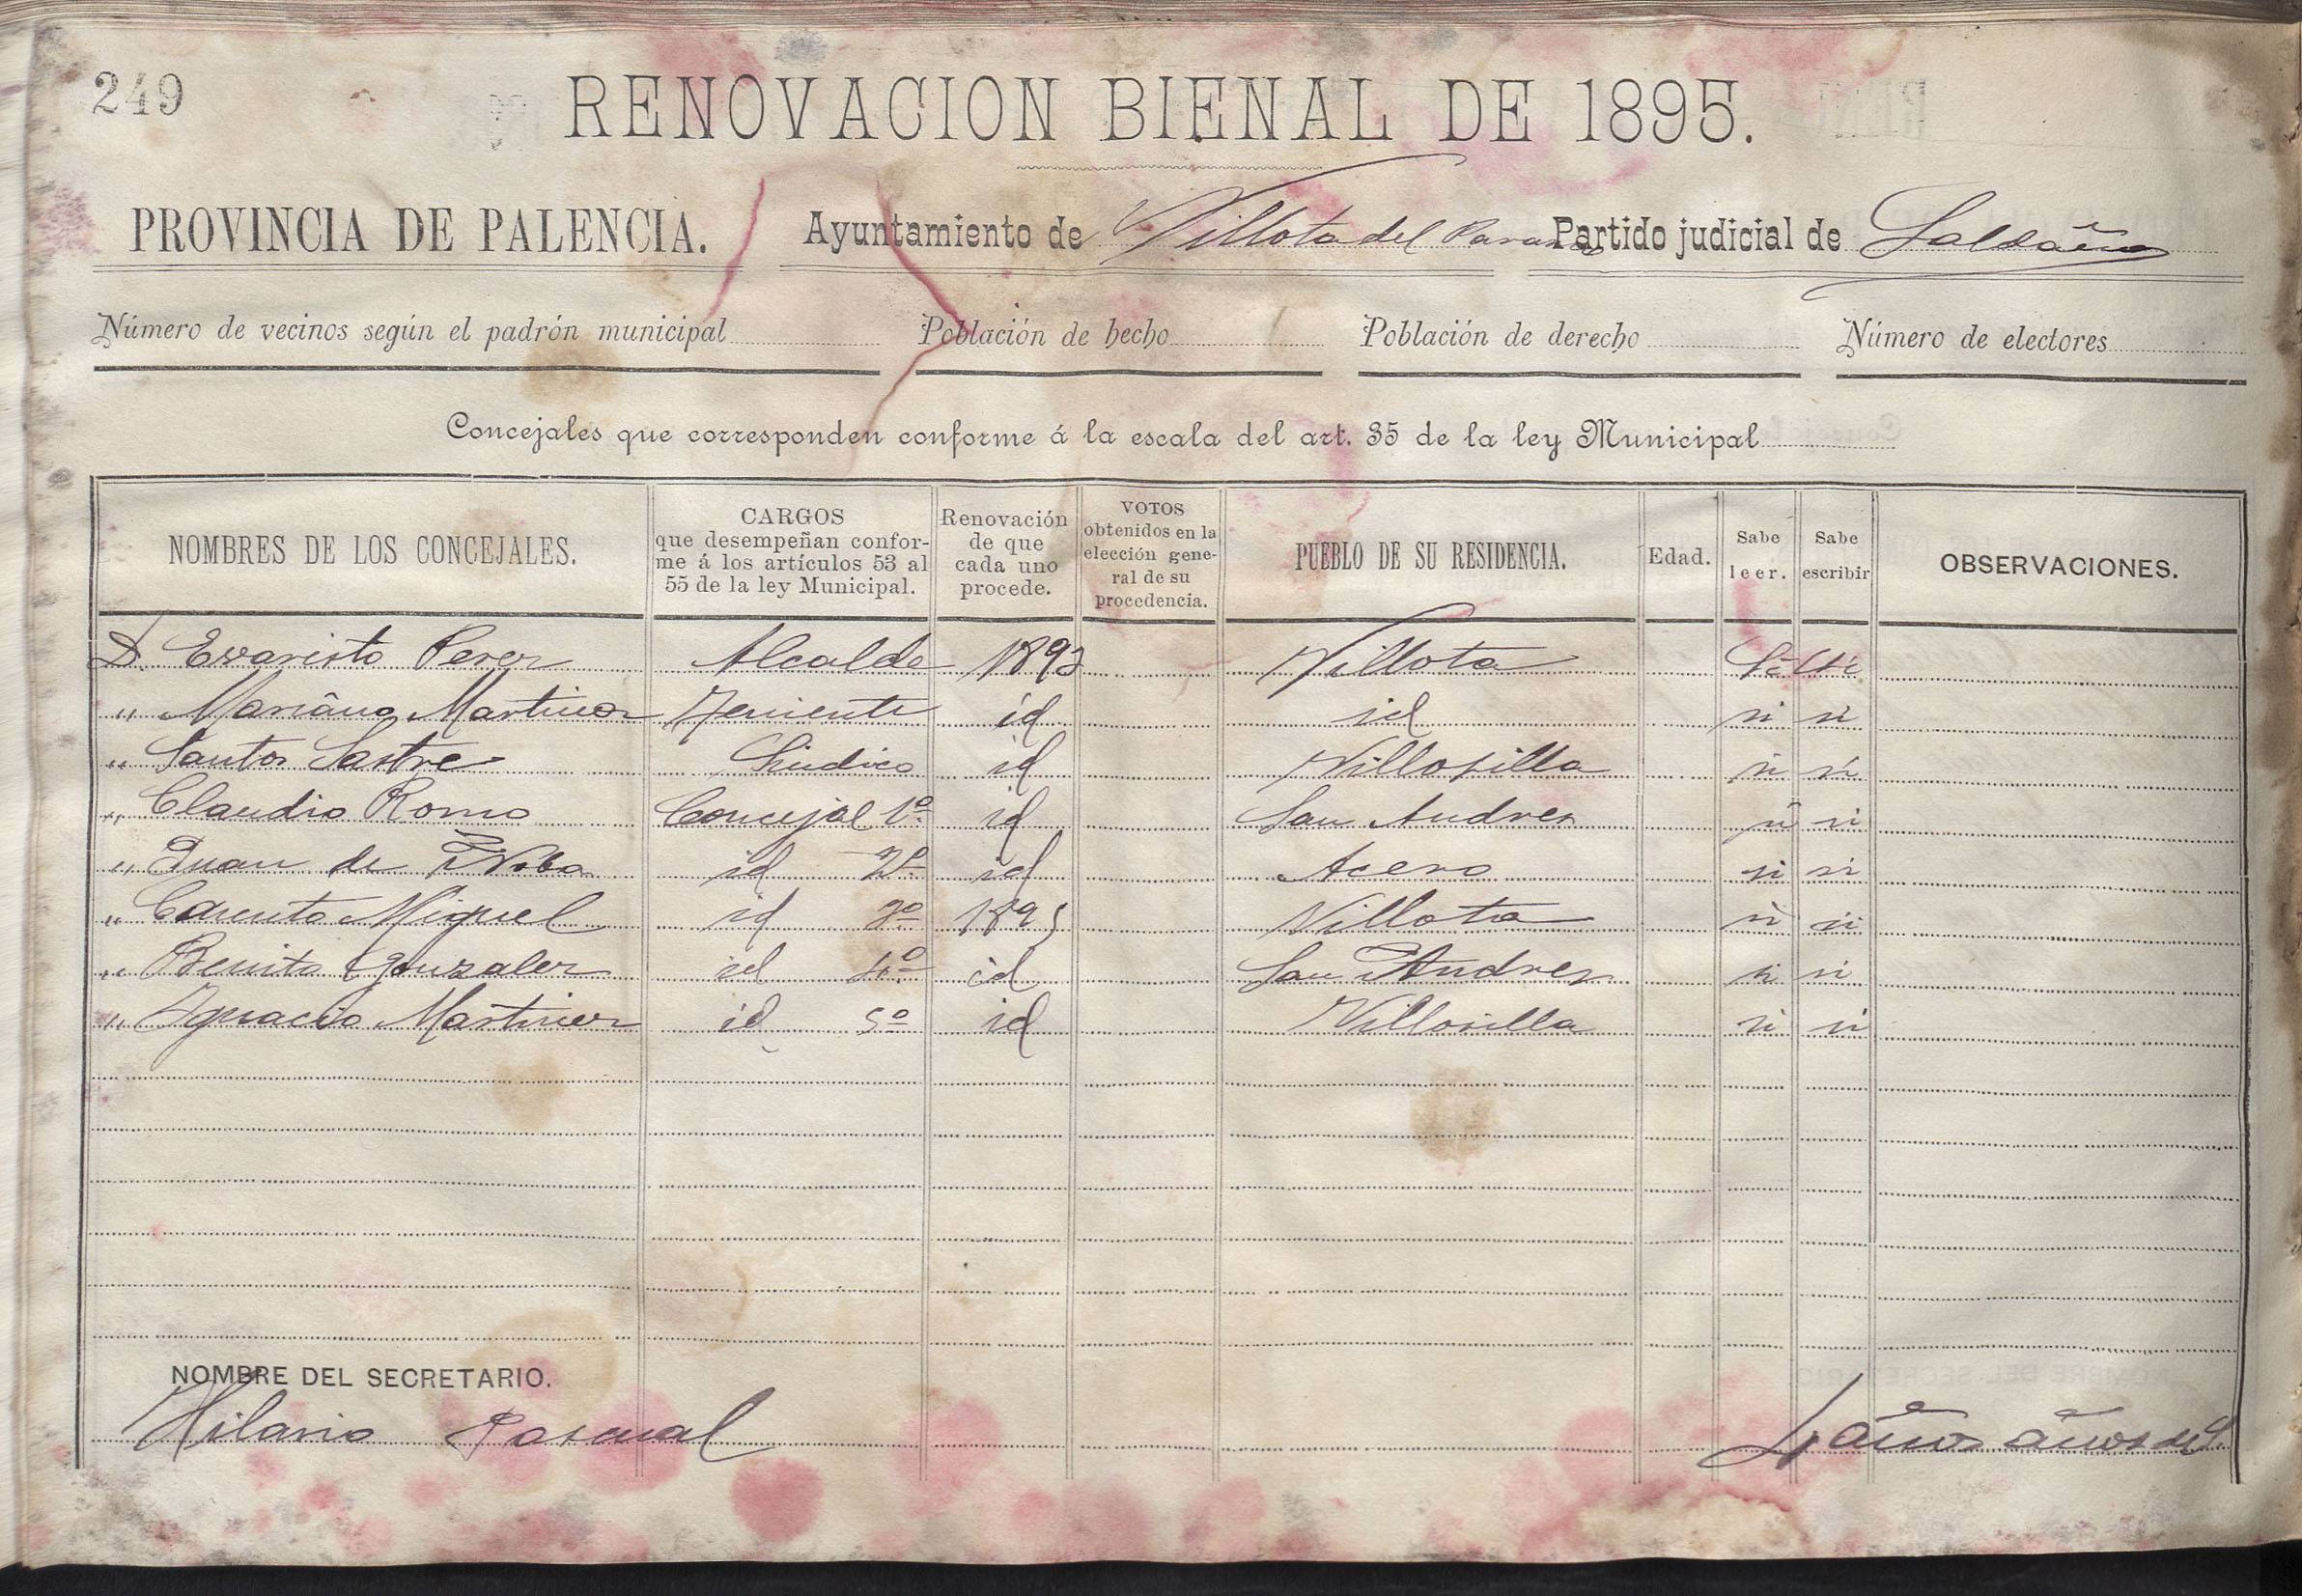 249
RENOVACION BIENAL DE 1895.
PROVINCIA DE PALENCIA. Ayuntamiento de Villota del Paramo Partido judicial de Saldaña
Número de vecinos según el padrón municipal Población de hecho Población de derecho Número de electores
Concejales que corresponden conforme á la escala del art. 35 de la ley Municipal
NOMBRES DE LOS CONCEJALES. CARGOS que desempeñan conforme á los artículos 53 al 55 de la ley Municipal. Renovación de que cada uno procede. VOTOS obtenidos en la elección general de su procedencia. PUEBLO DE SU RESIDENCIA. Edad. Sabe leer. Sabe escribir OBSERVACIONES.
D. Evaristo Perez Alcalde 1893 Villota Si Si
" Mariano Martinez Teniente id id si si
" Santos Sastre Sindico id Villosilla si si
" Claudio Romo Concejal 1º id San Andres si si
" Juan de id 2º id Acera si si
" Miguel id 3º 1895 Villota si si
" Benito Gonzalez id 4º id San Andres si si
" Ygnacio Martinez id 5º id Villosilla si si
NOMBRE DEL SECRETARIO.
Hilario Pascual